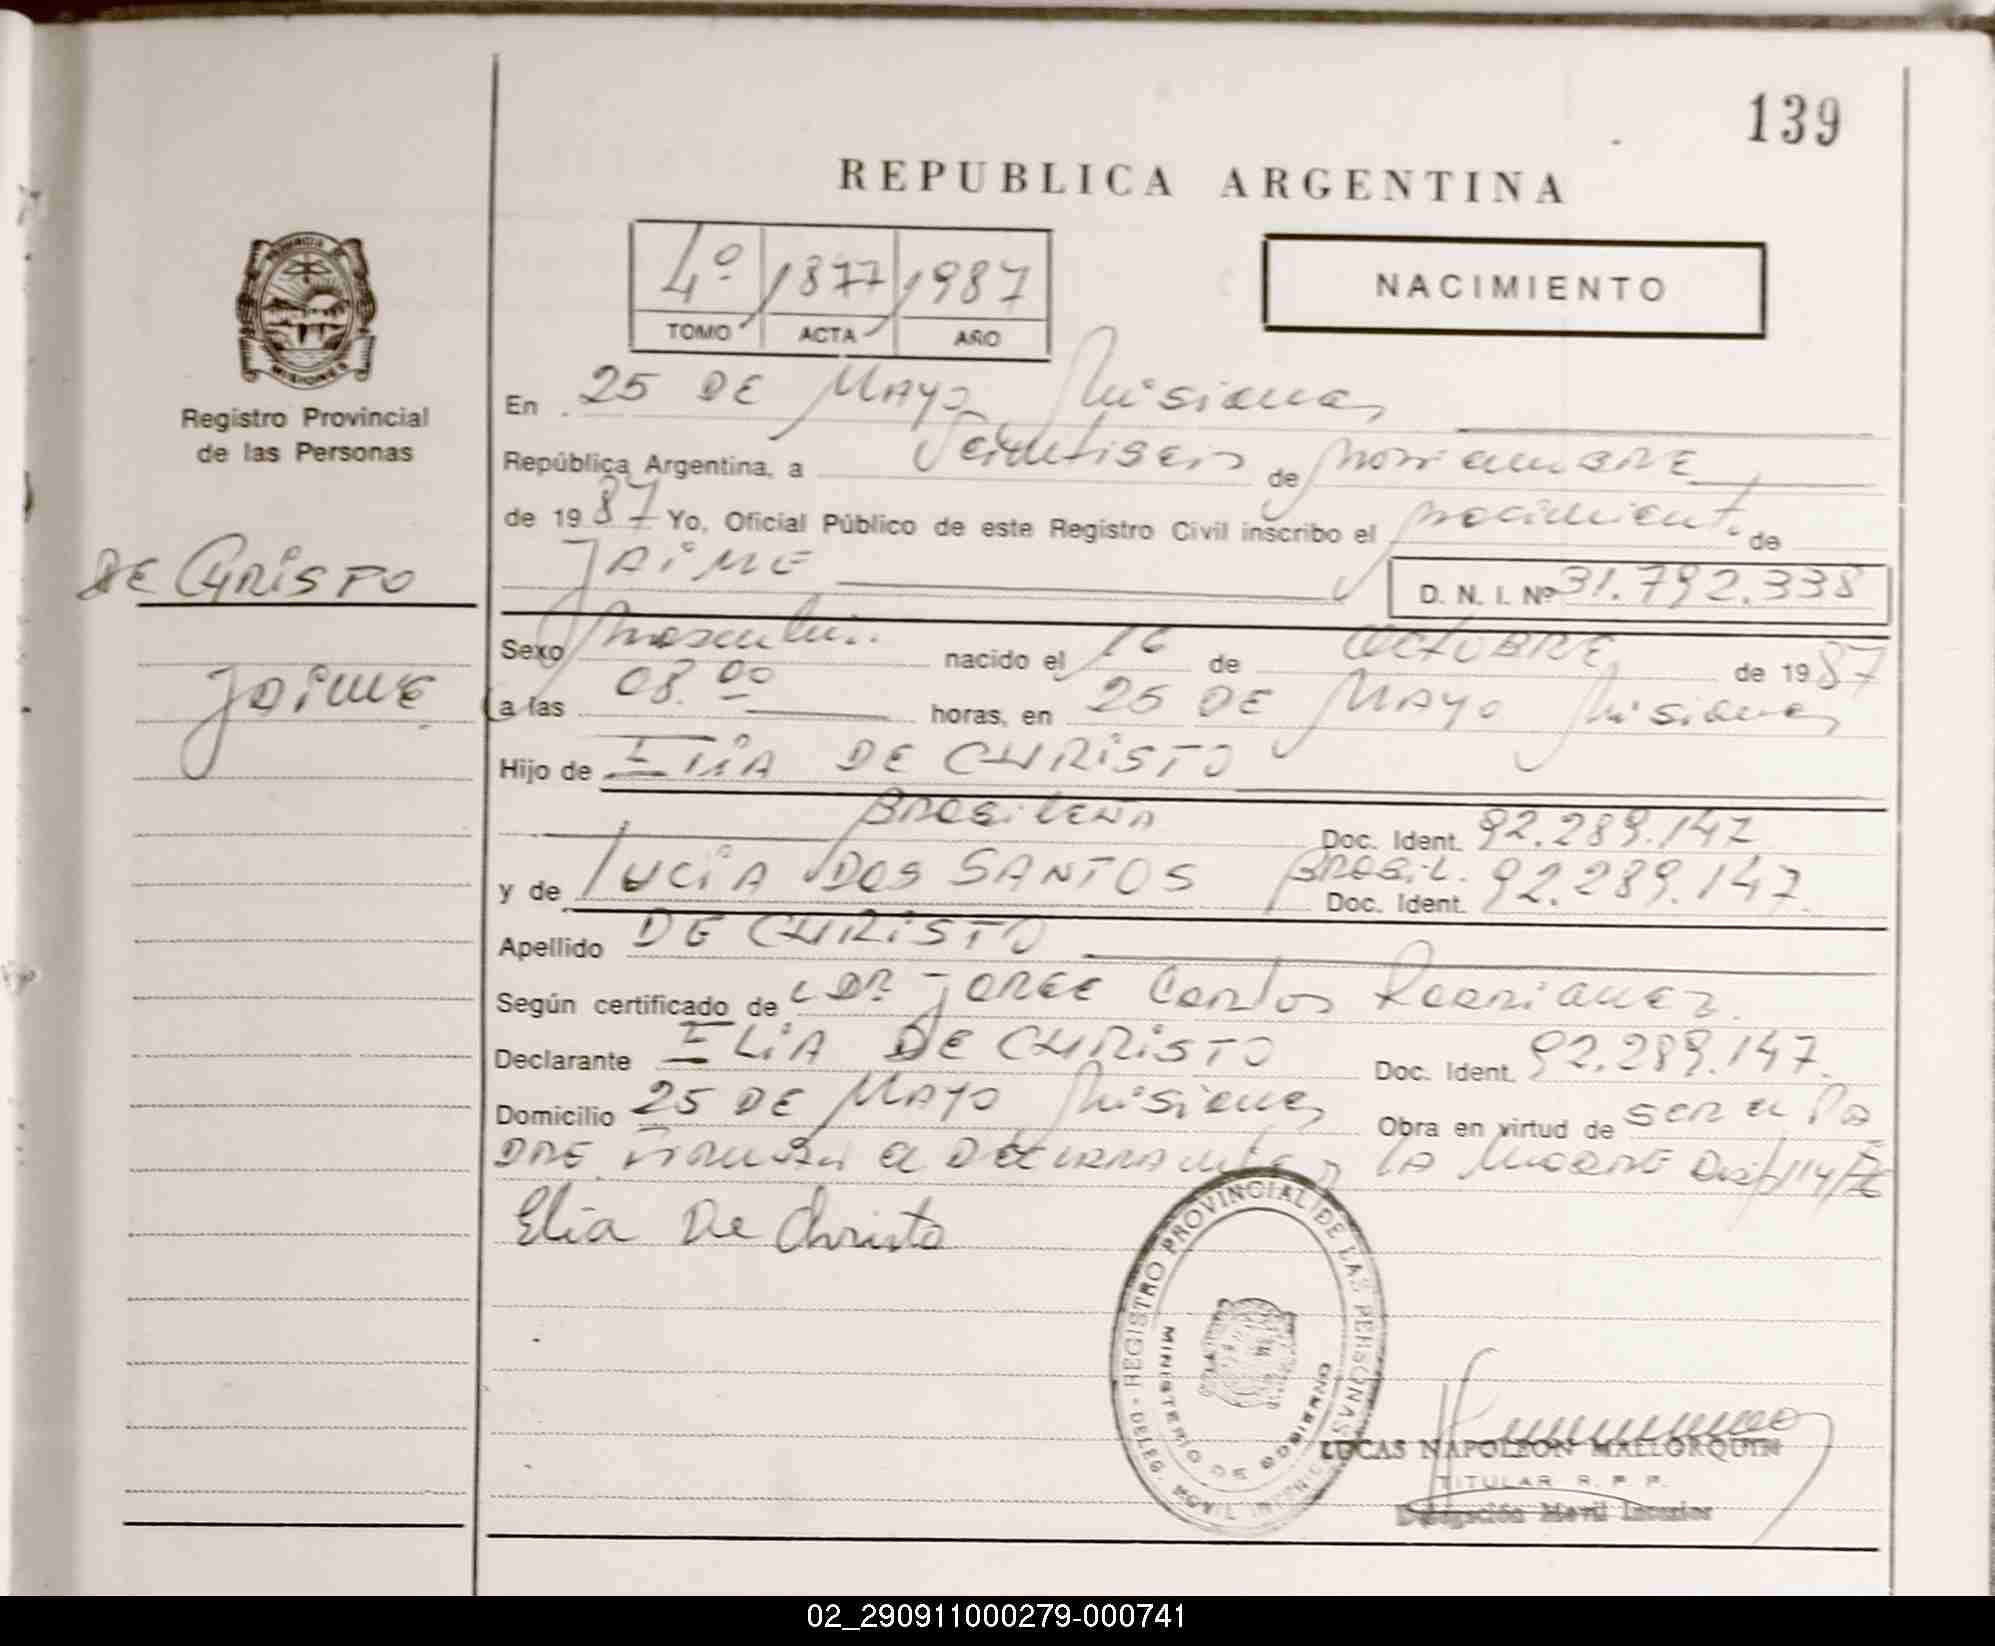 139
REPUBLICA ARGENTINA
4º 1877 1987
TOMO ACTA AÑO
NACIMIENTO
PROVINCIA DE MISIONES
Registro Provincial
de las Personas
DE CHRISTO
Jaime
En 25 DE Mayo Misiones
República Argentina, a Veintiseis de noviemBRE
de 1987 Yo, Oficial Público de este Registro Civil inscribo el nacimiento de
JAIME D. N. I. Nº 31.792.338
Sexo masculino nacido el 16 de OCTUBRE de 1987
a las 08.00 horas, en 25 DE Mayo Misiones
Hijo de ELIA DE CHRISTO
BRASILEÑA Doc. Ident. 92.289.147
y de LUCIA DOS SANTOS BRASIL. Doc. Ident. 92.289.147.
Apellido DE CHRISTO
Según certificado de DR JORGE Carlos
Declarante ELIA DE CHRISTO Doc. Ident. 92.289.147.
Domicilio 25 DE MAYO Misiones Obra en virtud de SER el PA
DRE Firman el DECLARANTE y LA MADRE
Elia De Christo
REGISTRO PROVINCIAL DE LAS PERSONAS
MINISTERIO DE GOBIERNO
LUCAS NAPOLEON MALLORQUIN
TITULAR R. P. P.
Delegación Movil Interior
02_290911000279-000741